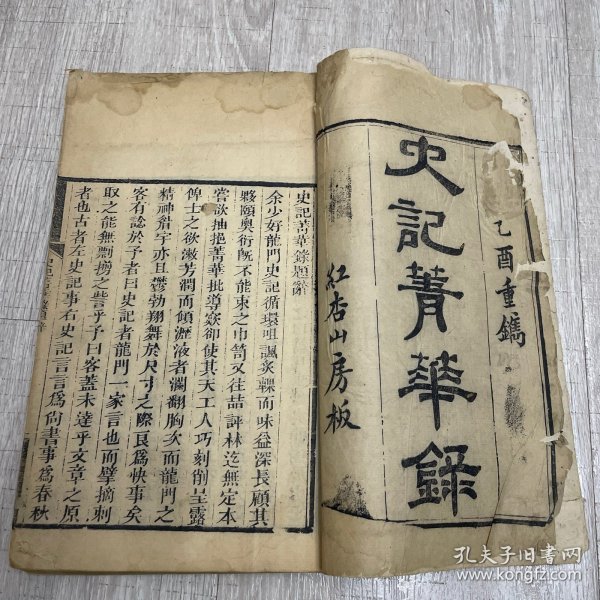 乙酉重鐫
史記菁華錄
紅杏山房板
史記菁華錄題辭
余少好龍門史記循環咀諷炙輠而味益深長顧其
夥頤奧衍既不能束之巾笥又往喆評林迄無定本
嘗欲抽挹菁華批導窾卻使其天工人巧刻削呈露
俾士之欲漱芳潤而傾瀝液者瀾翻胸次而龍門之
精神眉宇亦且鬱勃翔舞於尺寸之際良為快事矣
客有訟於予者曰史記者龍門一家言也而擘摘刺
取之能無劉摎之訾乎予曰客蓋未達乎文章之原
者也古者左史記事右史記言言為尚書事為春秋
孔夫子旧书网
www.kongfz.com